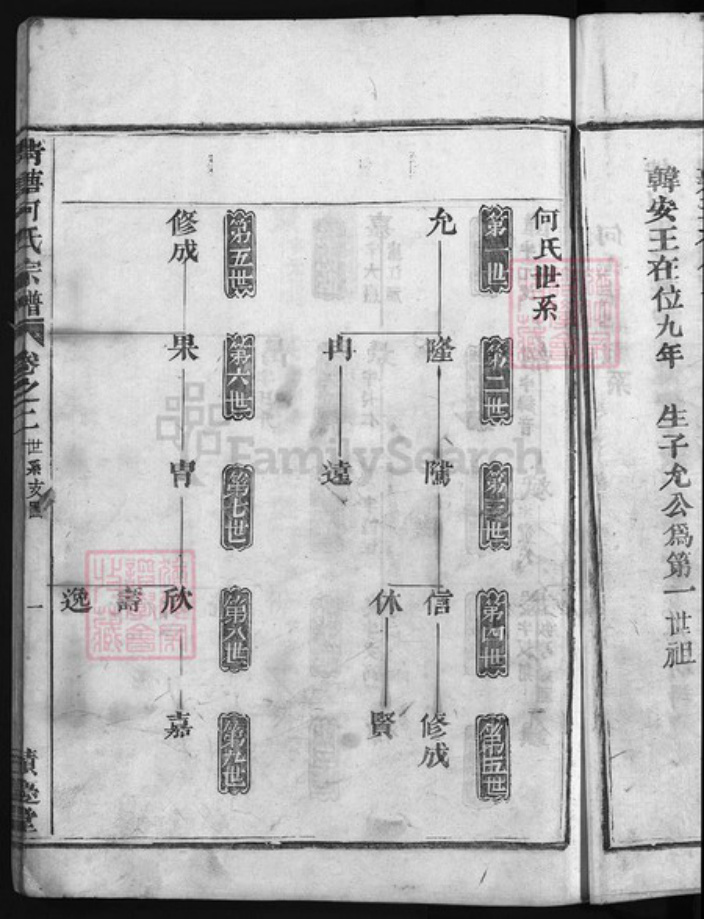 韓安王在位九年　生子允公爲第一世祖
何氏世系
第一世
允
第二世
隆
冉
第三世
遠
第四世
信
休
第五世
修成
賢
第五世
修成
第六世
果
第七世
冑
第八世
欣
壽
逸
第九世
嘉
何氏宗譜
卷之二
世系支圖
一
FamilySearch